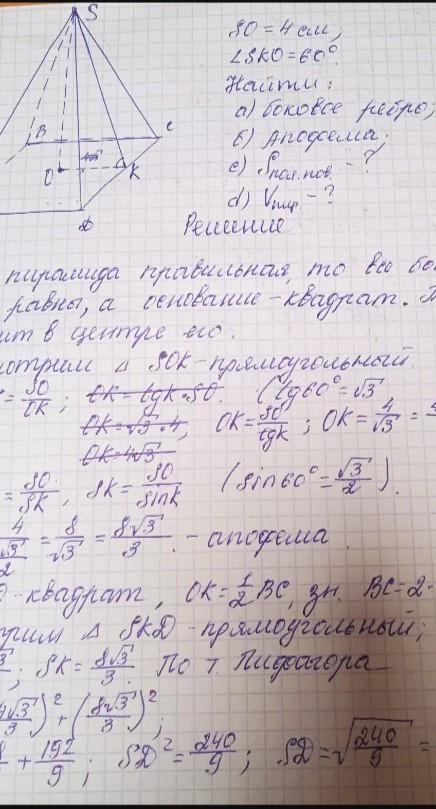 S
B
C
O
K
D
SO = 4 см,
∠SKO = 60°.
Найти:
a) боковое ребро;
б) Апофема;
c) Sпол.пов. - ?
d) Vпир. - ?
Решение
пирамида правильная, то все бо
равны, а основание - квадрат.
в центре его.
Δ SOK - прямоугольный.
= SO/OK; OK = tgK · SO. (tg60° = √3
OK = √3 · 4, OK = SO/tgK; OK = 4/√3 = 4
OK = 4√3
= SO/SK, SK = SO/sinK (sin60° = √3/2).
4/(√3/2) = 8/√3 = 8√3/3 - апофема.
- квадрат, OK = 1/2 BC, зн. BC = 2 ·
Δ SKD - прямоугольный;
; SK = 8√3/3. По т. Пифагора
4√3/3)² + (8√3/3)²;
+ 192/9; SD² = 240/9; SD = √(240/9) =